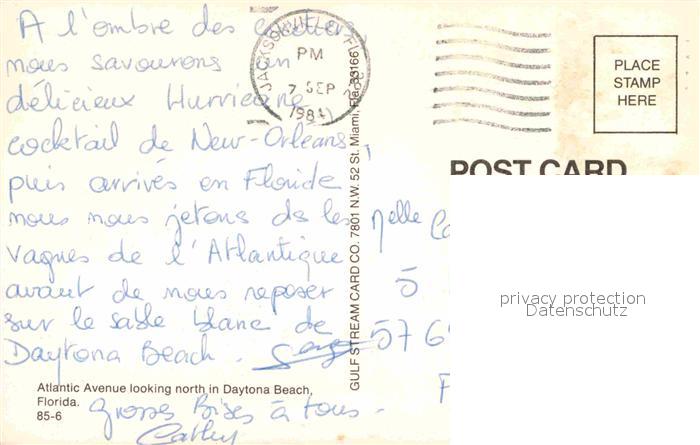 A l'ombre des cocotiers
nous savourons un
délicieux Hurricane
cocktail de New-Orléans,
puis arrivés en Floride
nous nous jetons ds les
vagues de l'Atlantique
avant de nous reposer
sur le sable blanc de
Daytona Beach. Serge
Grosses Bises à tous.
Cathy
Atlantic Avenue looking north in Daytona Beach,
Florida.
85-6
GULF STREAM CARD CO. 7801 N.W. 52 St. Miami, Fla. 33166
JACKSONVILLE FL
PM
7 SEP
1984
PLACE
STAMP
HERE
POST CARD
Melle
5
576
F
privacy protection
Datenschutz